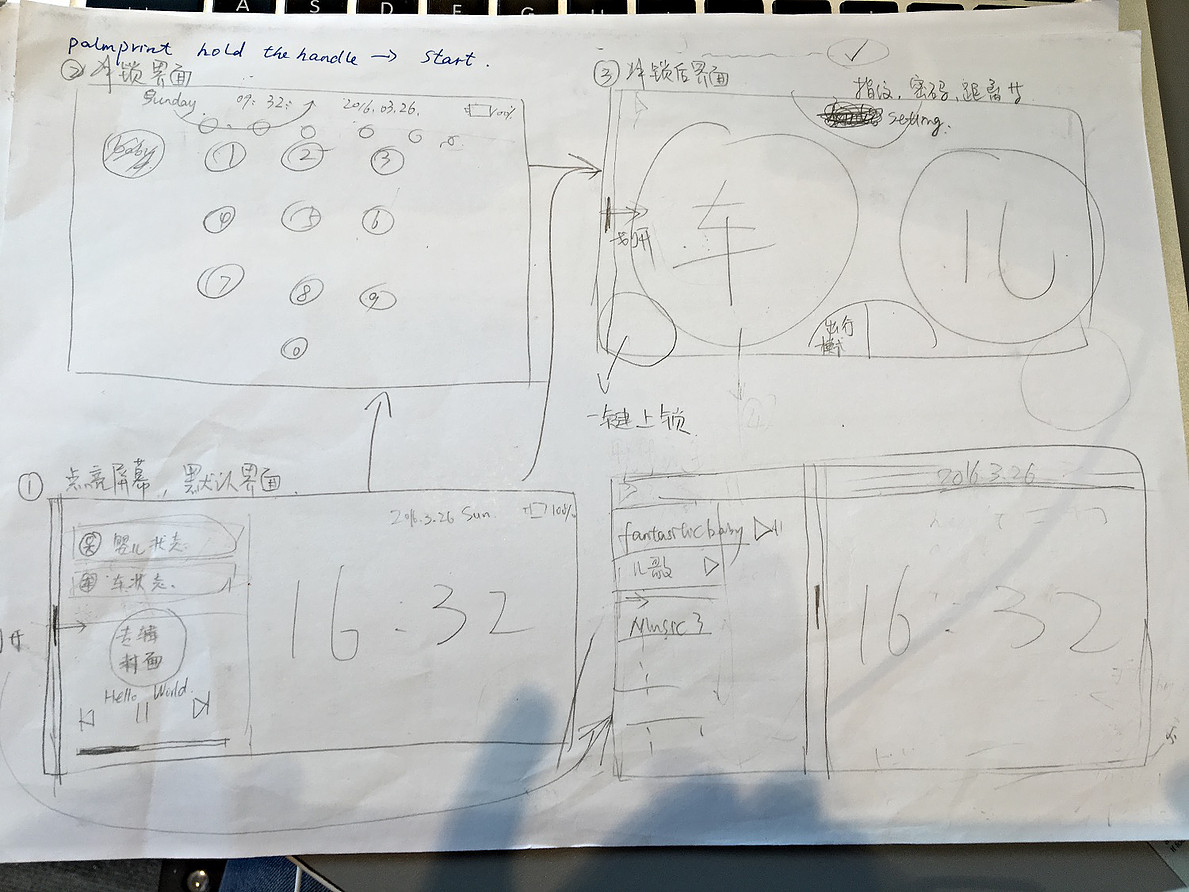 A S D F G H
palmprint hold the handle → start.
② 解锁界面
Sunday 09:32: 2016.03.26. 100%
Baby
1 2 3
4 5 6
7 8 9
0
③ 解锁后界面
指纹、密码、距离
setting.
划开
车 儿
出行
模式
一键上锁
① 点亮屏幕,默认界面.
2016.3.26 Sun. 100%
婴儿状态.
车状态.
专辑
封面
Hello World.
16:32
2016.3.26
fantastic baby
儿歌
Music 3
16:32